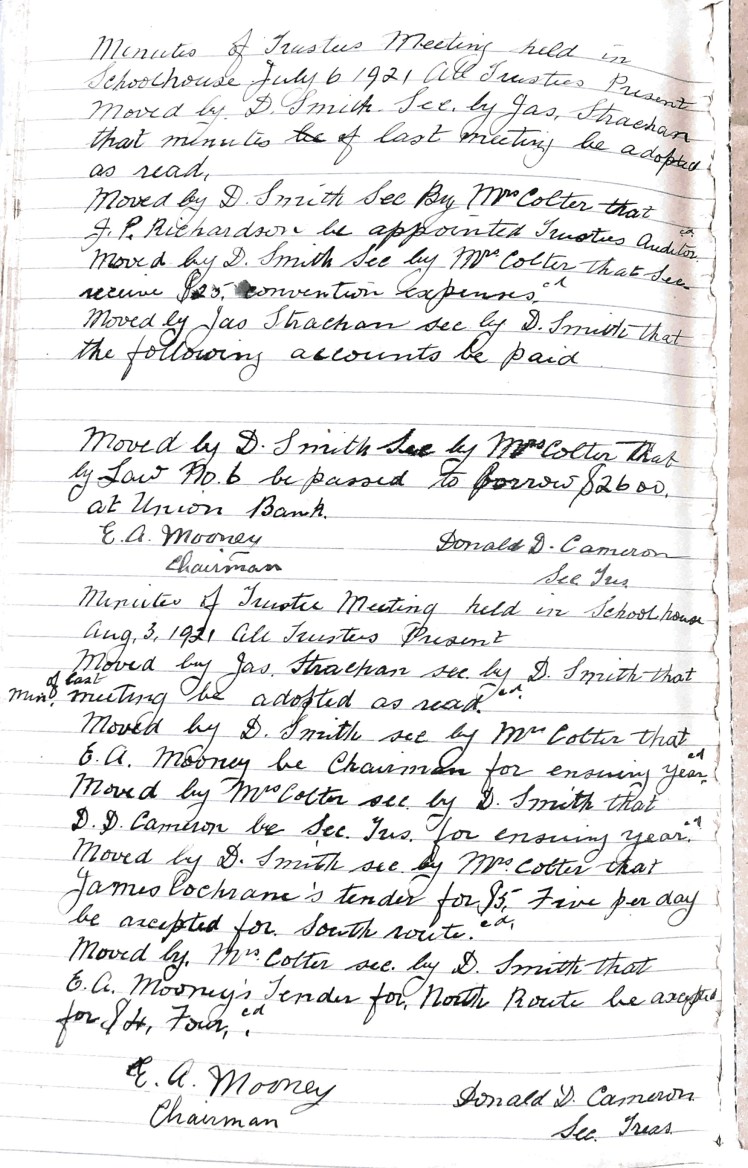 Minutes of Trustees Meeting held in
Schoolhouse July 6 1921 All Trustees Present
Moved by D. Smith Sec. by Jas. Strachan
that minutes be of last meeting be adopted
as read,
Moved by D. Smith Sec By Mrs Colter that
J. P. Richardson be appointed Trustees Auditor. cd
Moved by D. Smith Sec by Mrs Colter that Sec
receive $25, convention expenses. cd
Moved by Jas Strachan sec by D. Smith that
the following accounts be paid
Moved by D. Smith Sec by Mrs Colter that
by Law No. 6 be passed to borrow $2600.
at Union Bank.
E. A. Mooney Donald D. Cameron
Chairman Sec Tres
Minutes of Trustee Meeting held in Schoolhouse
Aug, 3, 1921 All Trustees Present
Moved by Jas. Strachan sec. by D. Smith that
Min. of last meeting be adopted as read. cd.
Moved by D. Smith sec by Mrs Colter that
E. A. Mooney be Chairman for ensuing year. cd
Moved by Mrs Colter sec. by D. Smith that
D. D. Cameron be Sec. Tres. for ensuing year. cd
Moved by D. Smith sec by Mrs Colter that
James Cochrane's tender for $5, Five per day
be accepted for South route. cd.
Moved by Mrs. Colter sec. by D. Smith that
E. A. Mooney's Tender for North Route be accepted
for $4, Four, cd.
E. A. Mooney Donald D. Cameron
Chairman Sec. Treas.